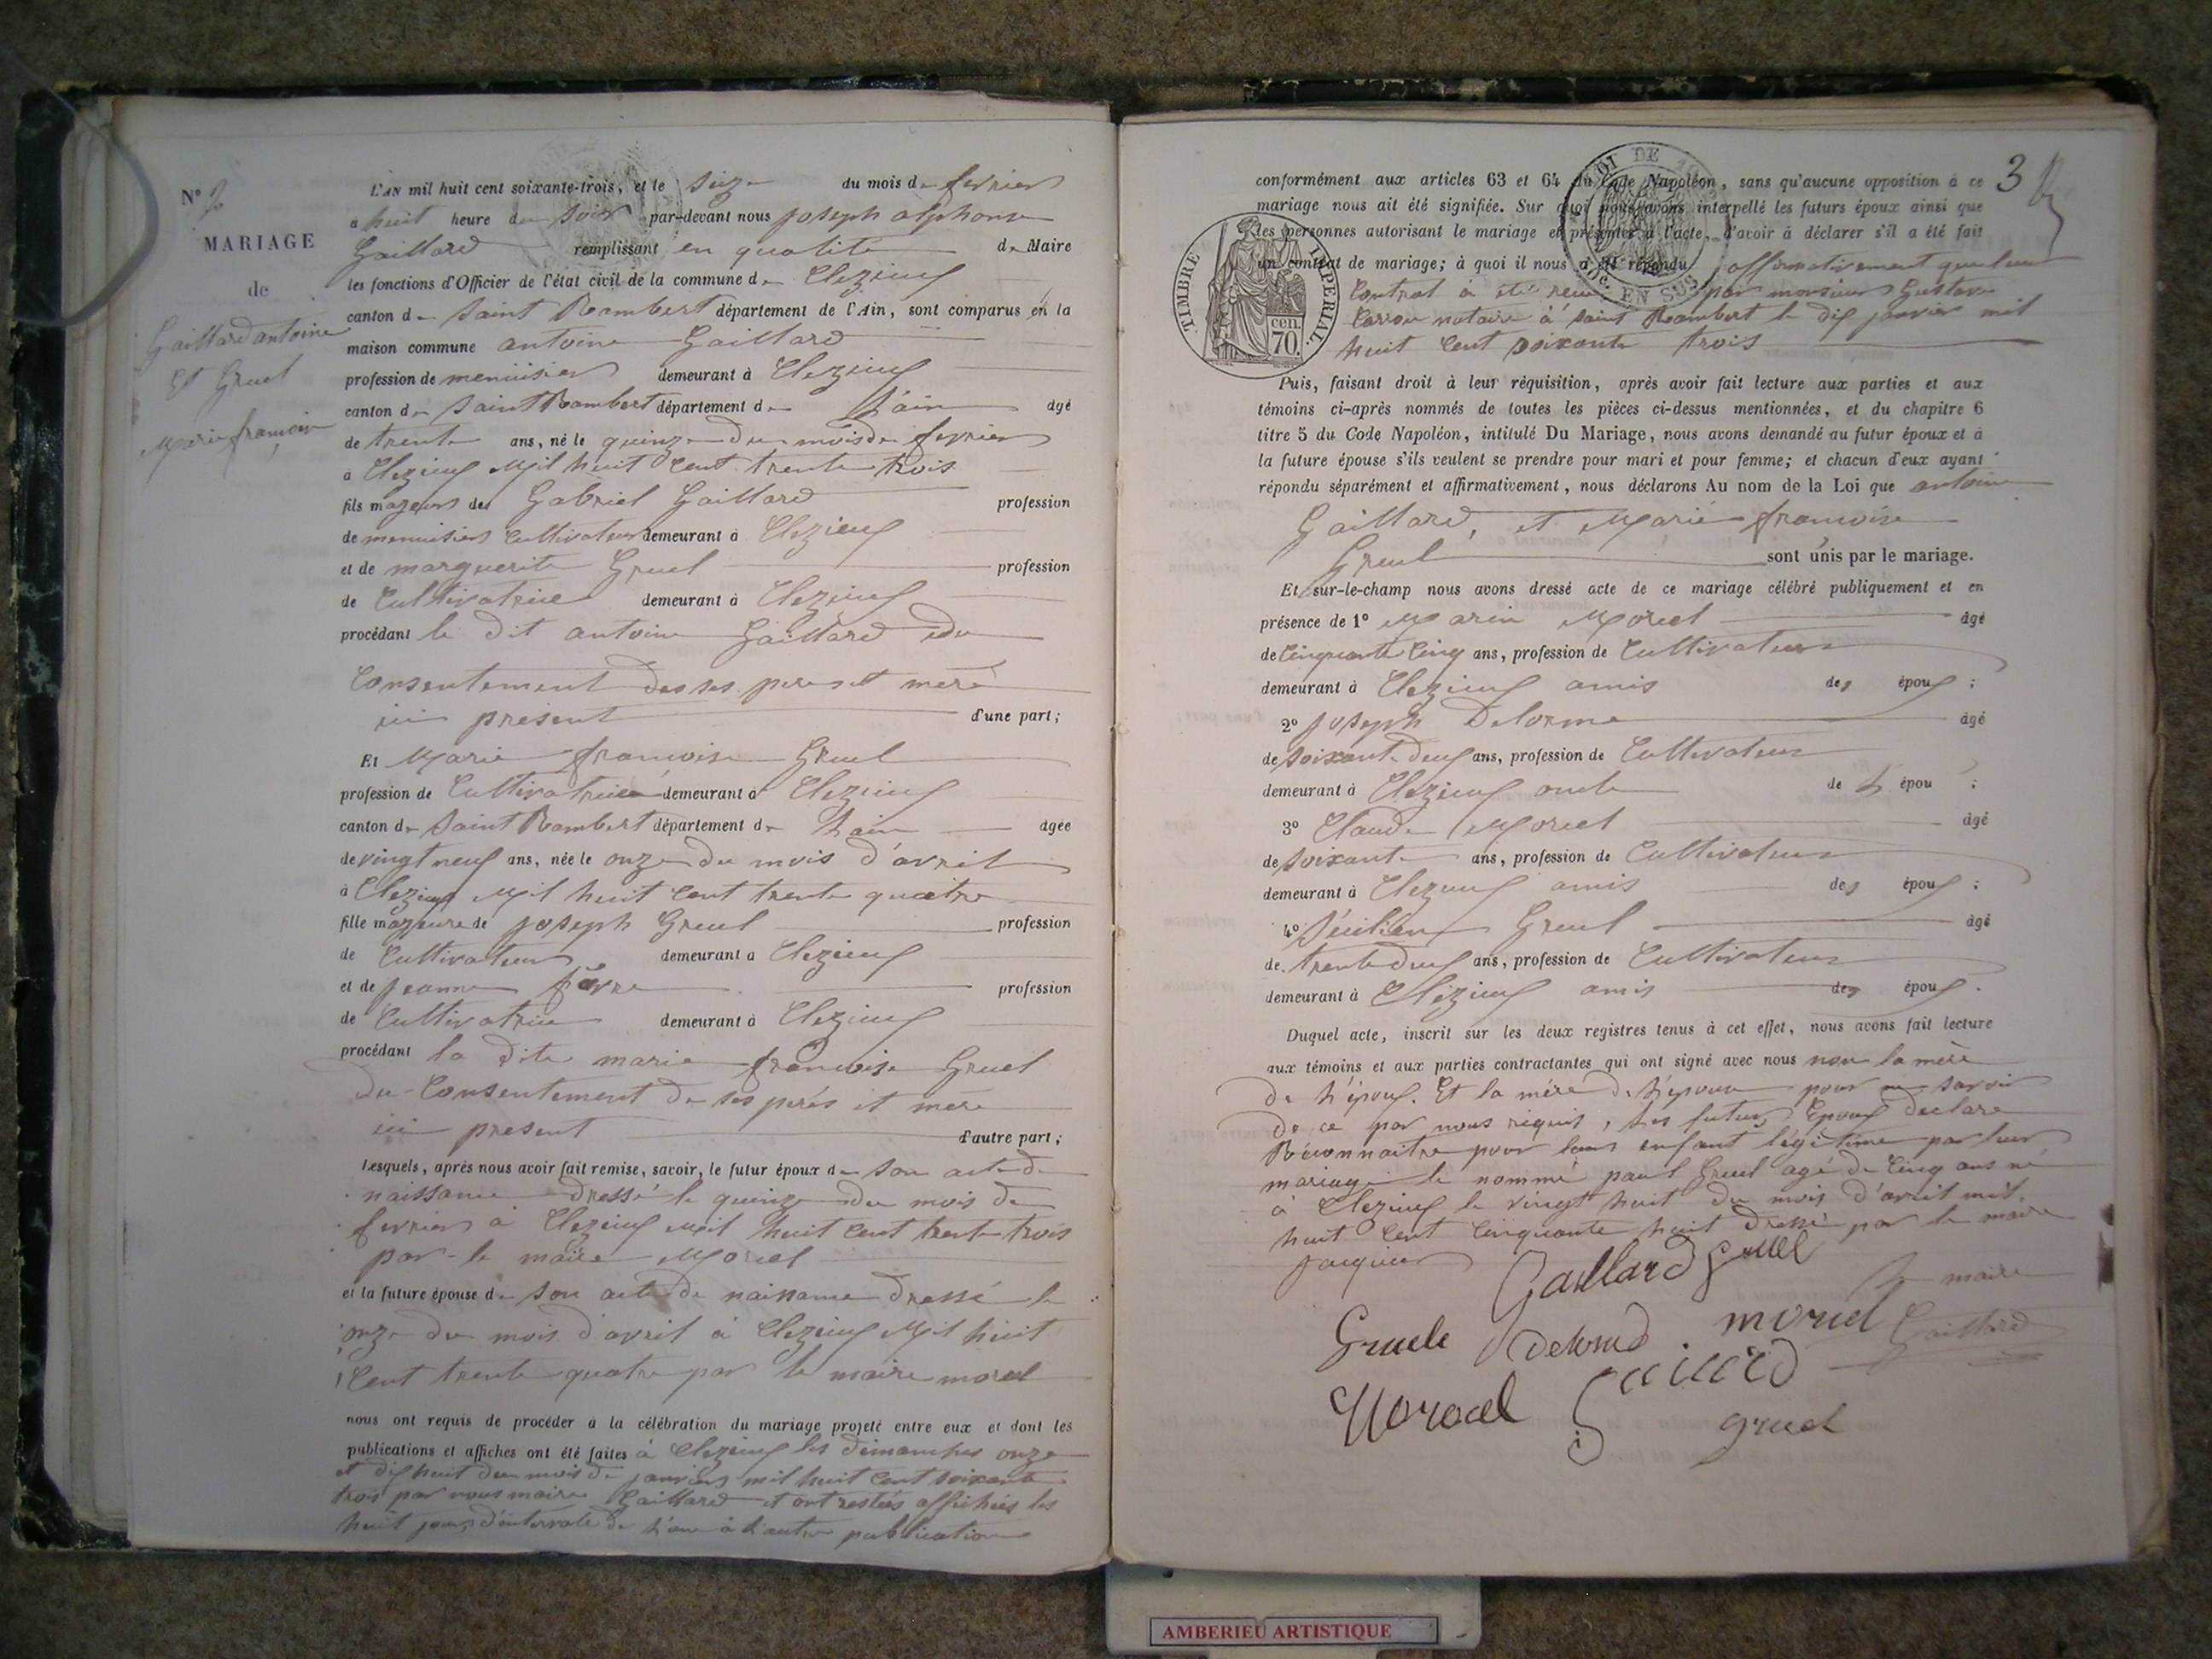 N° 2
MARIAGE
de
Gaillard antoine
Et Gruel
Marie françoise
L'AN mil huit cent soixante-trois, et le seize du mois de fevrier
a huit heure du soir par-devant nous joseph alphonse
Gaillard remplissant en qualité de Maire
les fonctions d'Officier de l'état civil de la commune de Clezieux
canton de Saint Rambert département de l'Ain, sont comparus en la
maison commune antoine Gaillard
profession de menuisier demeurant à Clezieux
canton de Saint Rambert département de L'ain âgé
de trente ans, né le quinze du mois de fevrier
à Clezieux Mil huit Cent trente trois
fils majeur de Gabriel Gaillard profession
de menuisier Cultivateur demeurant à Clezieux
et de marguerite Gruel profession
de Cultivatrice demeurant à Clezieux
procédant le dit antoine Gaillard du
Consentement des ses peres et mere
ici présent d'une part;
Et Marie françoise Gruel
profession de Cultivatrice demeurant à Clezieux
canton de Saint Rambert département de L'ain agée
de vingt neuf ans, née le onze du mois d'avril
à Clezieux Mil huit Cent trente quatre
fille majeure de joseph Gruel profession
de Cultivateur demeurant a Clezieux
et de jeanne favre profession
de Cultivatrice demeurant à Clezieux
procédant la dite marie françoise Gruel
du Consentement de ses perés et mere
ici présent d'autre part;
Lesquels, après nous avoir fait remise, savoir, le futur époux de son acte de
naissance dressé le quinze du mois de
fevrier à Clezieux Mil huit Cent trente trois
par le maire Morel
et la future épouse de son acte de naissance dressé le
onze du mois d'avril à Clezieux Mil huit
Cent trente quatre par le maire morel
nous ont requis de procéder à la célébration du mariage projeté entre eux et dont les
publications et affiches ont été faites à Clezieux les dimanches onze
et dix huit du mois de janvier mil huit Cent soixante
trois par nous maire Gaillard et ont restées affichées les
huit jours d'intervale de l'une à l'autre publication
3
conformément aux articles 63 et 64 du Code Napoléon, sans qu'aucune opposition à ce
mariage nous ait été signifiée. Sur quoi nous avons interpellé les futurs époux ainsi que
les personnes autorisant le mariage et présentes à l'acte, d'avoir à déclarer s'il a été fait
un contrat de mariage; à quoi il nous a été répondu affirmativement que leur
Contrat à été reçu par monsieur Gustave
notaire à Saint Rambert le dix janvier mil
huit Cent soixante trois
TIMBRE IMPERIAL
70 cen.
EN SUS
Puis, faisant droit à leur réquisition, après avoir fait lecture aux parties et aux
témoins ci-après nommés de toutes les pièces ci-dessus mentionnées, et du chapitre 6
titre 5 du Code Napoléon, intitulé Du Mariage, nous avons demandé au futur époux et à
la future épouse s'ils veulent se prendre pour mari et pour femme; et chacun d'eux ayant
répondu séparément et affirmativement, nous déclarons Au nom de la Loi que antoine
Gaillard, et Marie françoise
Gruel sont unis par le mariage.
Et sur-le-champ nous avons dressé acte de ce mariage célébré publiquement et en
présence de 1° Marin Morel âgé
de Cinquante Cinq ans, profession de Cultivateur
demeurant à Clezieux amis des époux;
2° joseph Delorme âgé
de soixante deux ans, profession de Cultivateur
demeurant à Clezieux oncle de L'épou;
3° Claude Morel âgé
de soixante ans, profession de Cultivateur
demeurant à Clezieux amis des époux;
4° Gruel âgé
de trente deux ans, profession de Cultivateur
demeurant à Clezieux amis des époux.
Duquel acte, inscrit sur les deux registres tenus à cet effet, nous avons fait lecture
aux témoins et aux parties contractantes qui ont signé avec nous non la mère
de l'époux. Et la mère de l'épouse pour ne savoir
de ce par nous requis, Les futurs Epoux declare
Réconnaitre pour leur enfant légitime par leur
mariage le nommé paul Gruel agé de Cinq ans né
à Clezieux le vingt huit du mois d'avril mil
huit Cent Cinquante huit dressé par le maire
jacquier
Gaillard Gruel
Le maire
Gaillard
Gruele Delorme morel
Morael Gaillard
gruel
AMBERIEU ARTISTIQUE